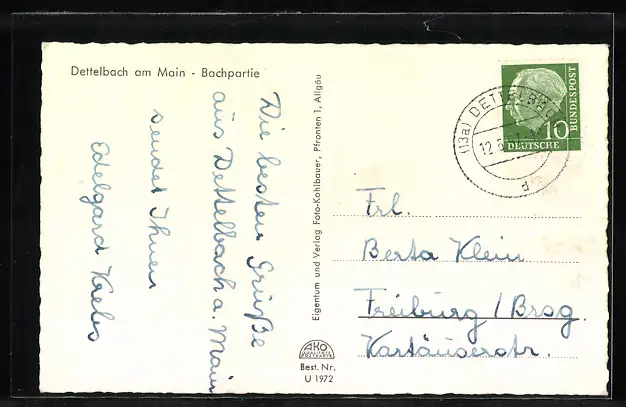 Dettelbach am Main - Bachpartie
Die besten Grüße
aus Dettelbach a. Main
sendet Ihnen
Edelgard Krebs
Eigentum und Verlag Foto-Kohlbauer, Pfronten 1, Allgäu
AKO
Best. Nr.
U 1972
(13a) DETTELBACH
12.5
d
10
DEUTSCHE
BUNDESPOST
Frl.
Berta Klein
Freiburg / Brsg.
Kartäuserstr.